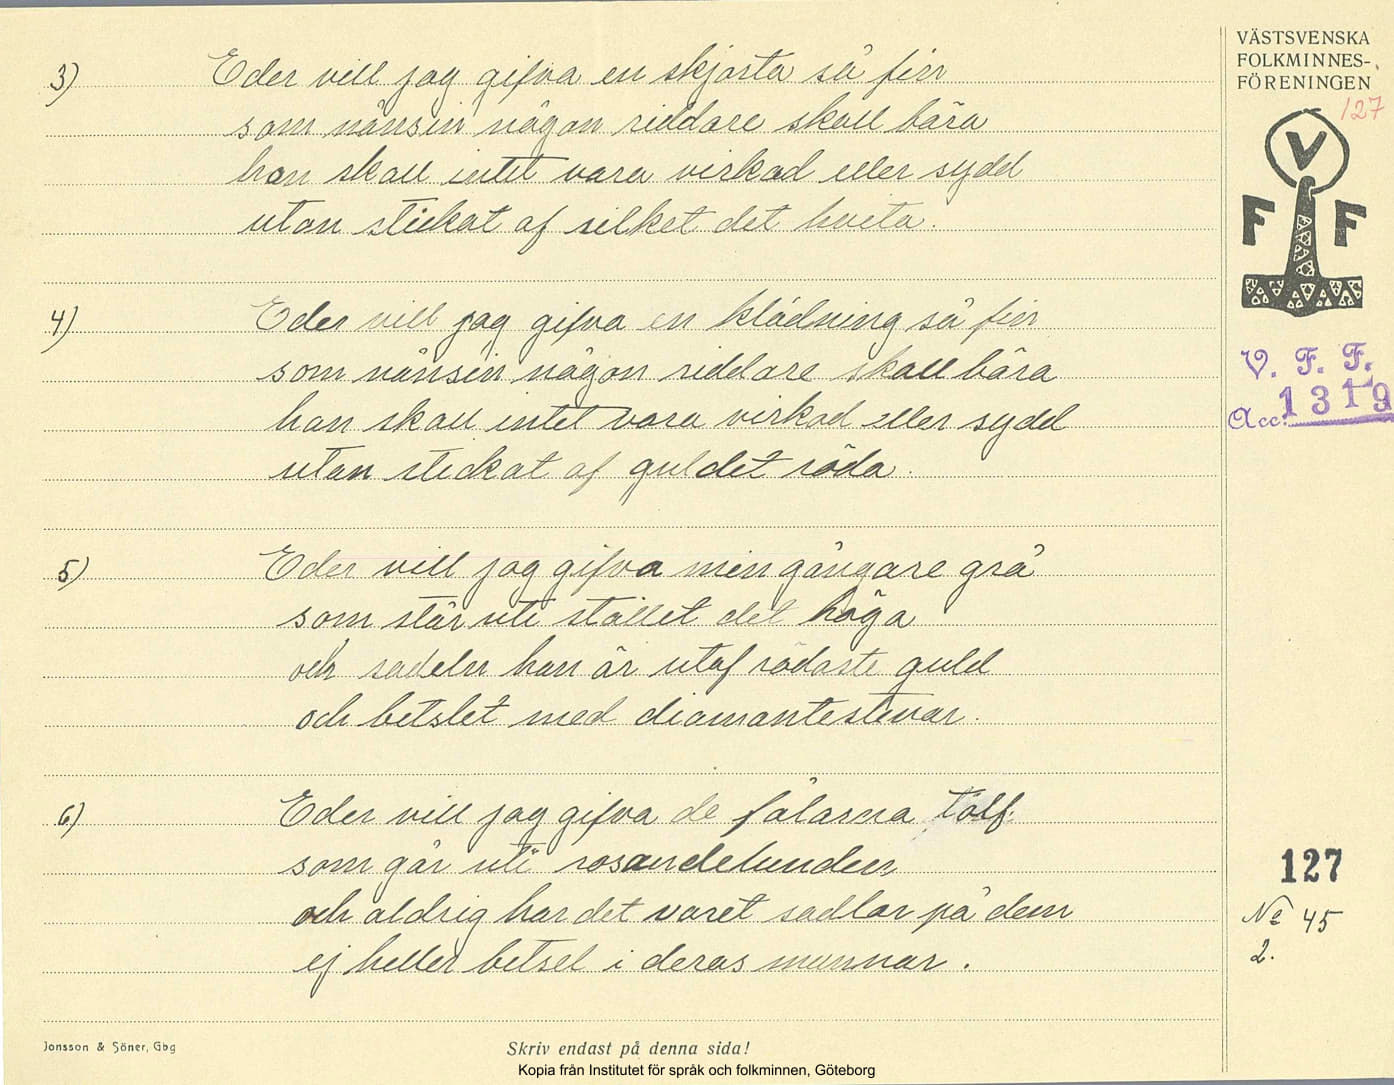 3) Eder vill jag gifva en skjorta så fin
som nånsin någon riddare skall bära
han skall intet vara virkad eller sydd
utan stickat af silket det hvita.
4) Eder vill jag gifva en klädning så fin
som nånsin någon riddare skall bära
han skall intet vara virkad eller sydd
utan stickat af guldet röda.
5) Eder vill jag gifva min gångare grå
som står uti stallet det höga
och sadeln han är utaf rödaste guld
och betslet med diamantestenar.
6) Eder vill jag gifva de fålarna tolf.
som går uti rosandelunden
och aldrig har det varet sadlar på dem
ej heller betsel i deras munnar.
VÄSTSVENSKA
FOLKMINNES-
FÖRENINGEN
127
V
F F
V. F. F.
Acc. 1319
127
No 45
2.
Jonsson & Söner, Gbg
Skriv endast på denna sida!
Kopia från Institutet för språk och folkminnen, Göteborg